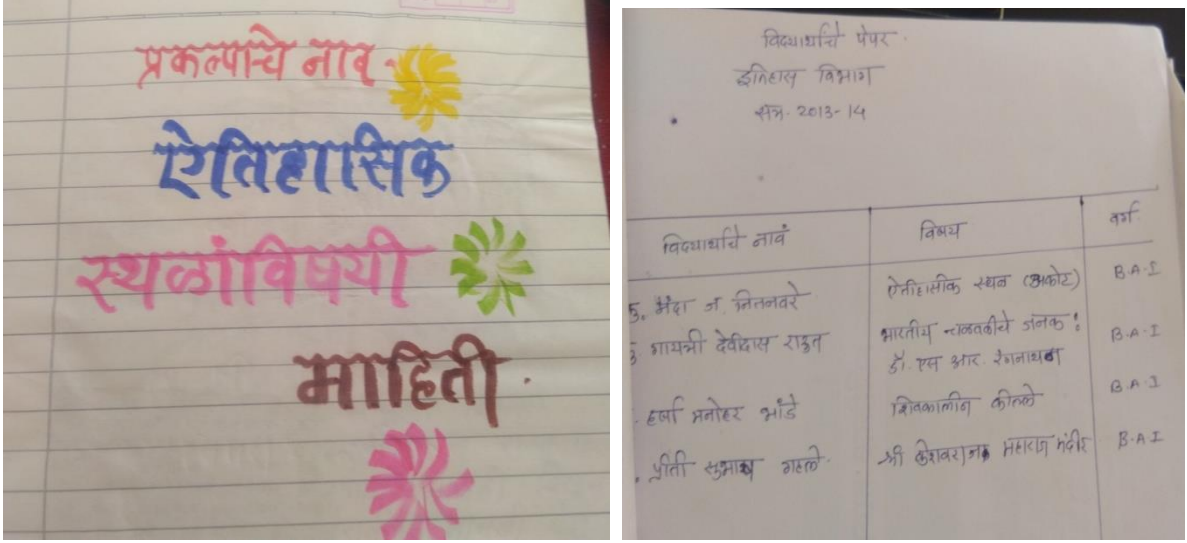 प्रकल्पाचे नाव
ऐतिहासिक
स्थळांविषयी
माहिती.
विद्यार्थ्याचे पेपर.
इतिहास विभाग
सत्र. 2013-14
विद्यार्थ्याचे नावं विषय वर्ग
5. मंदा ज. नितनवरे ऐतीहासीक स्थळ (अकोट) B.A.I
गायत्री देविदास राऊत भारतीय चळवळीचे जनक: B.A.I
डॉ. एस आर. रंगनाथन
हर्षा मनोहर भांडे शिवकालीन कील्ले B.A.I
प्रीती सुभाष गहले श्री केशवराज महाराज मंदीर B.A.I